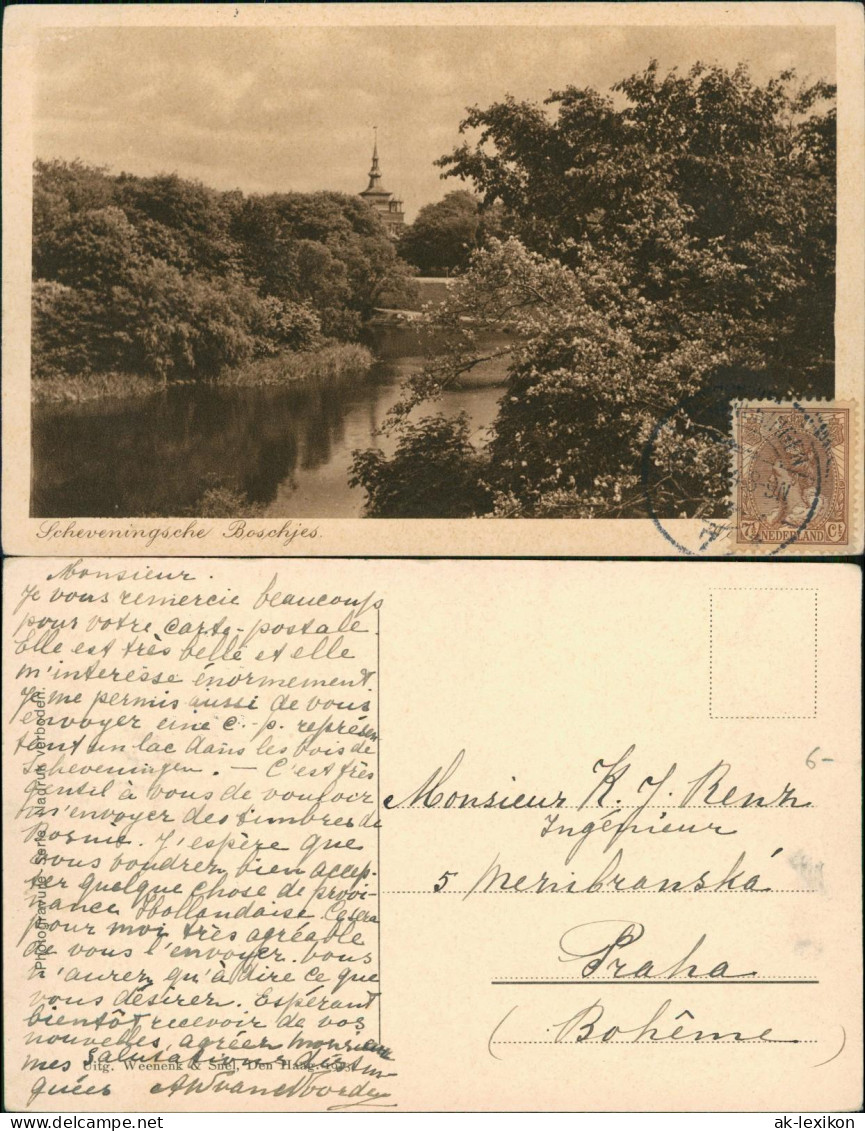 Scheveningsche Boschjes.
7½ NEDERLAND Ct
Monsieur.
Je vous remercie beaucoup
pour votre carte-postale.
Elle est très belle et elle
m'interesse énormement.
Je me permis aussi de vous
envoyer une c.-p. représen
tant un lac dans les bois de
Scheveningen. — C'est très
gentil à vous de vouloir
m'envoyer des timbres de
Bosnie. J'espère que
vous voudrez bien accep-
ter quelque chose de provi-
nance Hollandaise. Ce sera
pour moi très agréable
de vous l'envoyer. Vous
n'aurez qu'à dire ce que
vous désirez. Espérant
bientôt recevoir de vos
nouvelles, agréer monsieur
mes salutations distin-
guées AWvandVoorde
Photogravure Serie. Nadruk verboden.
Uitg. Weenenk & Snel, Den Haag.
6-
Monsieur K. J. Renz
Ingénieur
5 Membranská
Praha
(Bohême)
www.ak-ansichtskarten.de
ak-lexikon